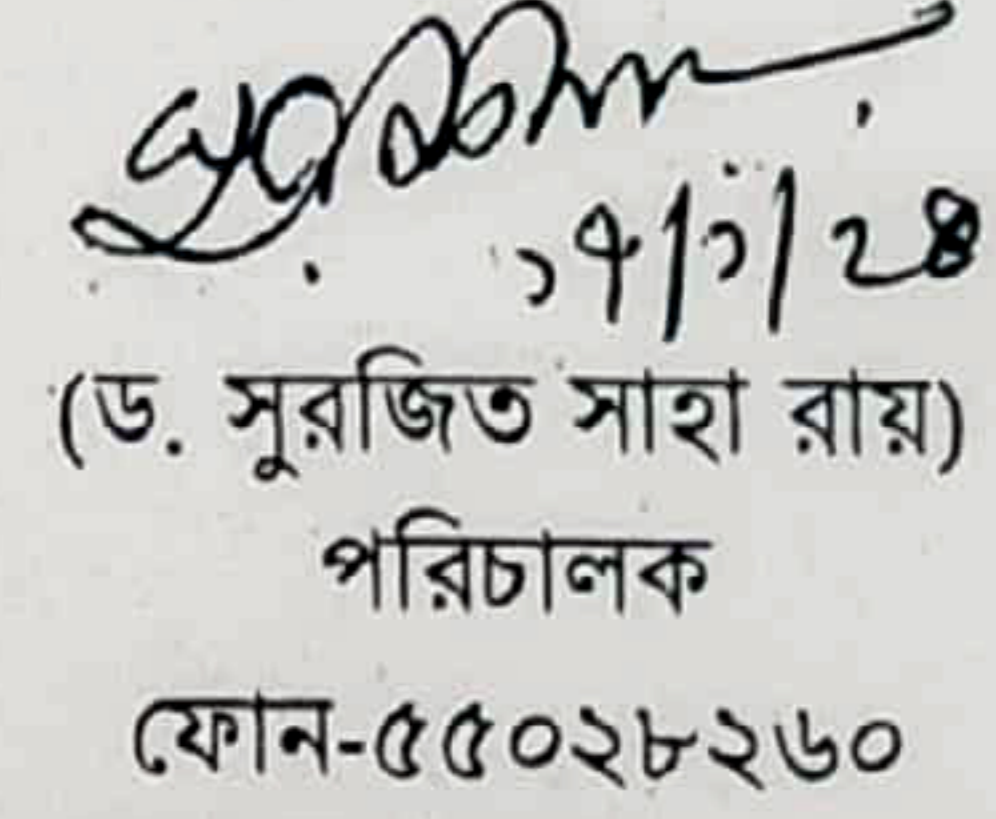 ১৭/১/২৪
(ড. সুরজিত সাহা রায়)
পরিচালক
ফোন-৫৫০২৮২৬০